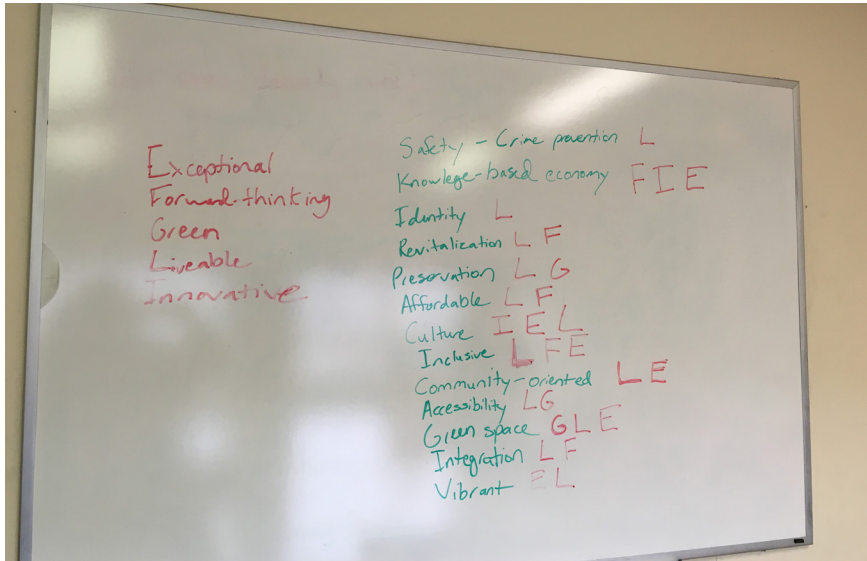 Exceptional
Forward-thinking
Green
Liveable
Innovative
Safety - Crime prevention L
Knowlege-based economy F I E
Identity L
Revitalization L F
Preservation L G
Affordable L F
Culture I E L
Inclusive L F E
Community-oriented L E
Accessibility L G
Green space G L E
Integration L F
Vibrant E L